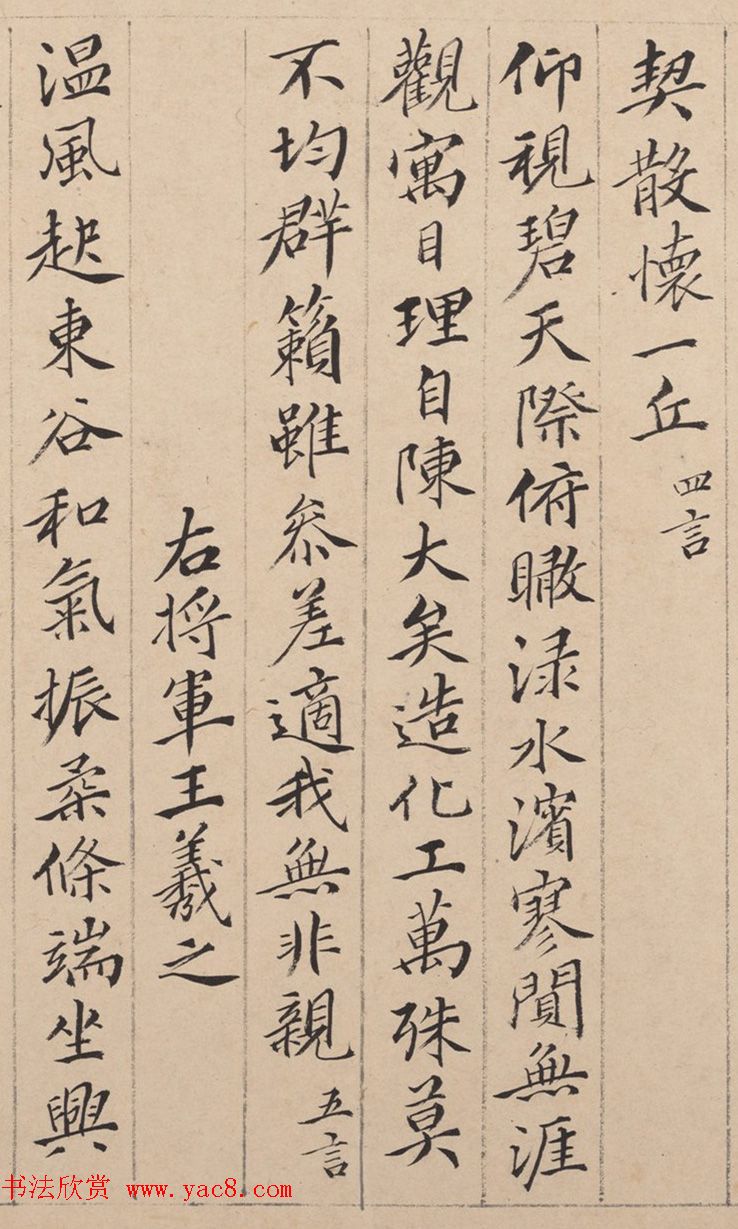 契散懷一丘 四言
仰視碧天際俯瞰渌水濱寥閴無涯
觀寓目理自陳大矣造化工萬殊莫
不均群籟雖參差適我無非親 五言
右將軍王羲之
温風起東谷和氣振柔條端坐興
书法欣赏 www.yac8.com